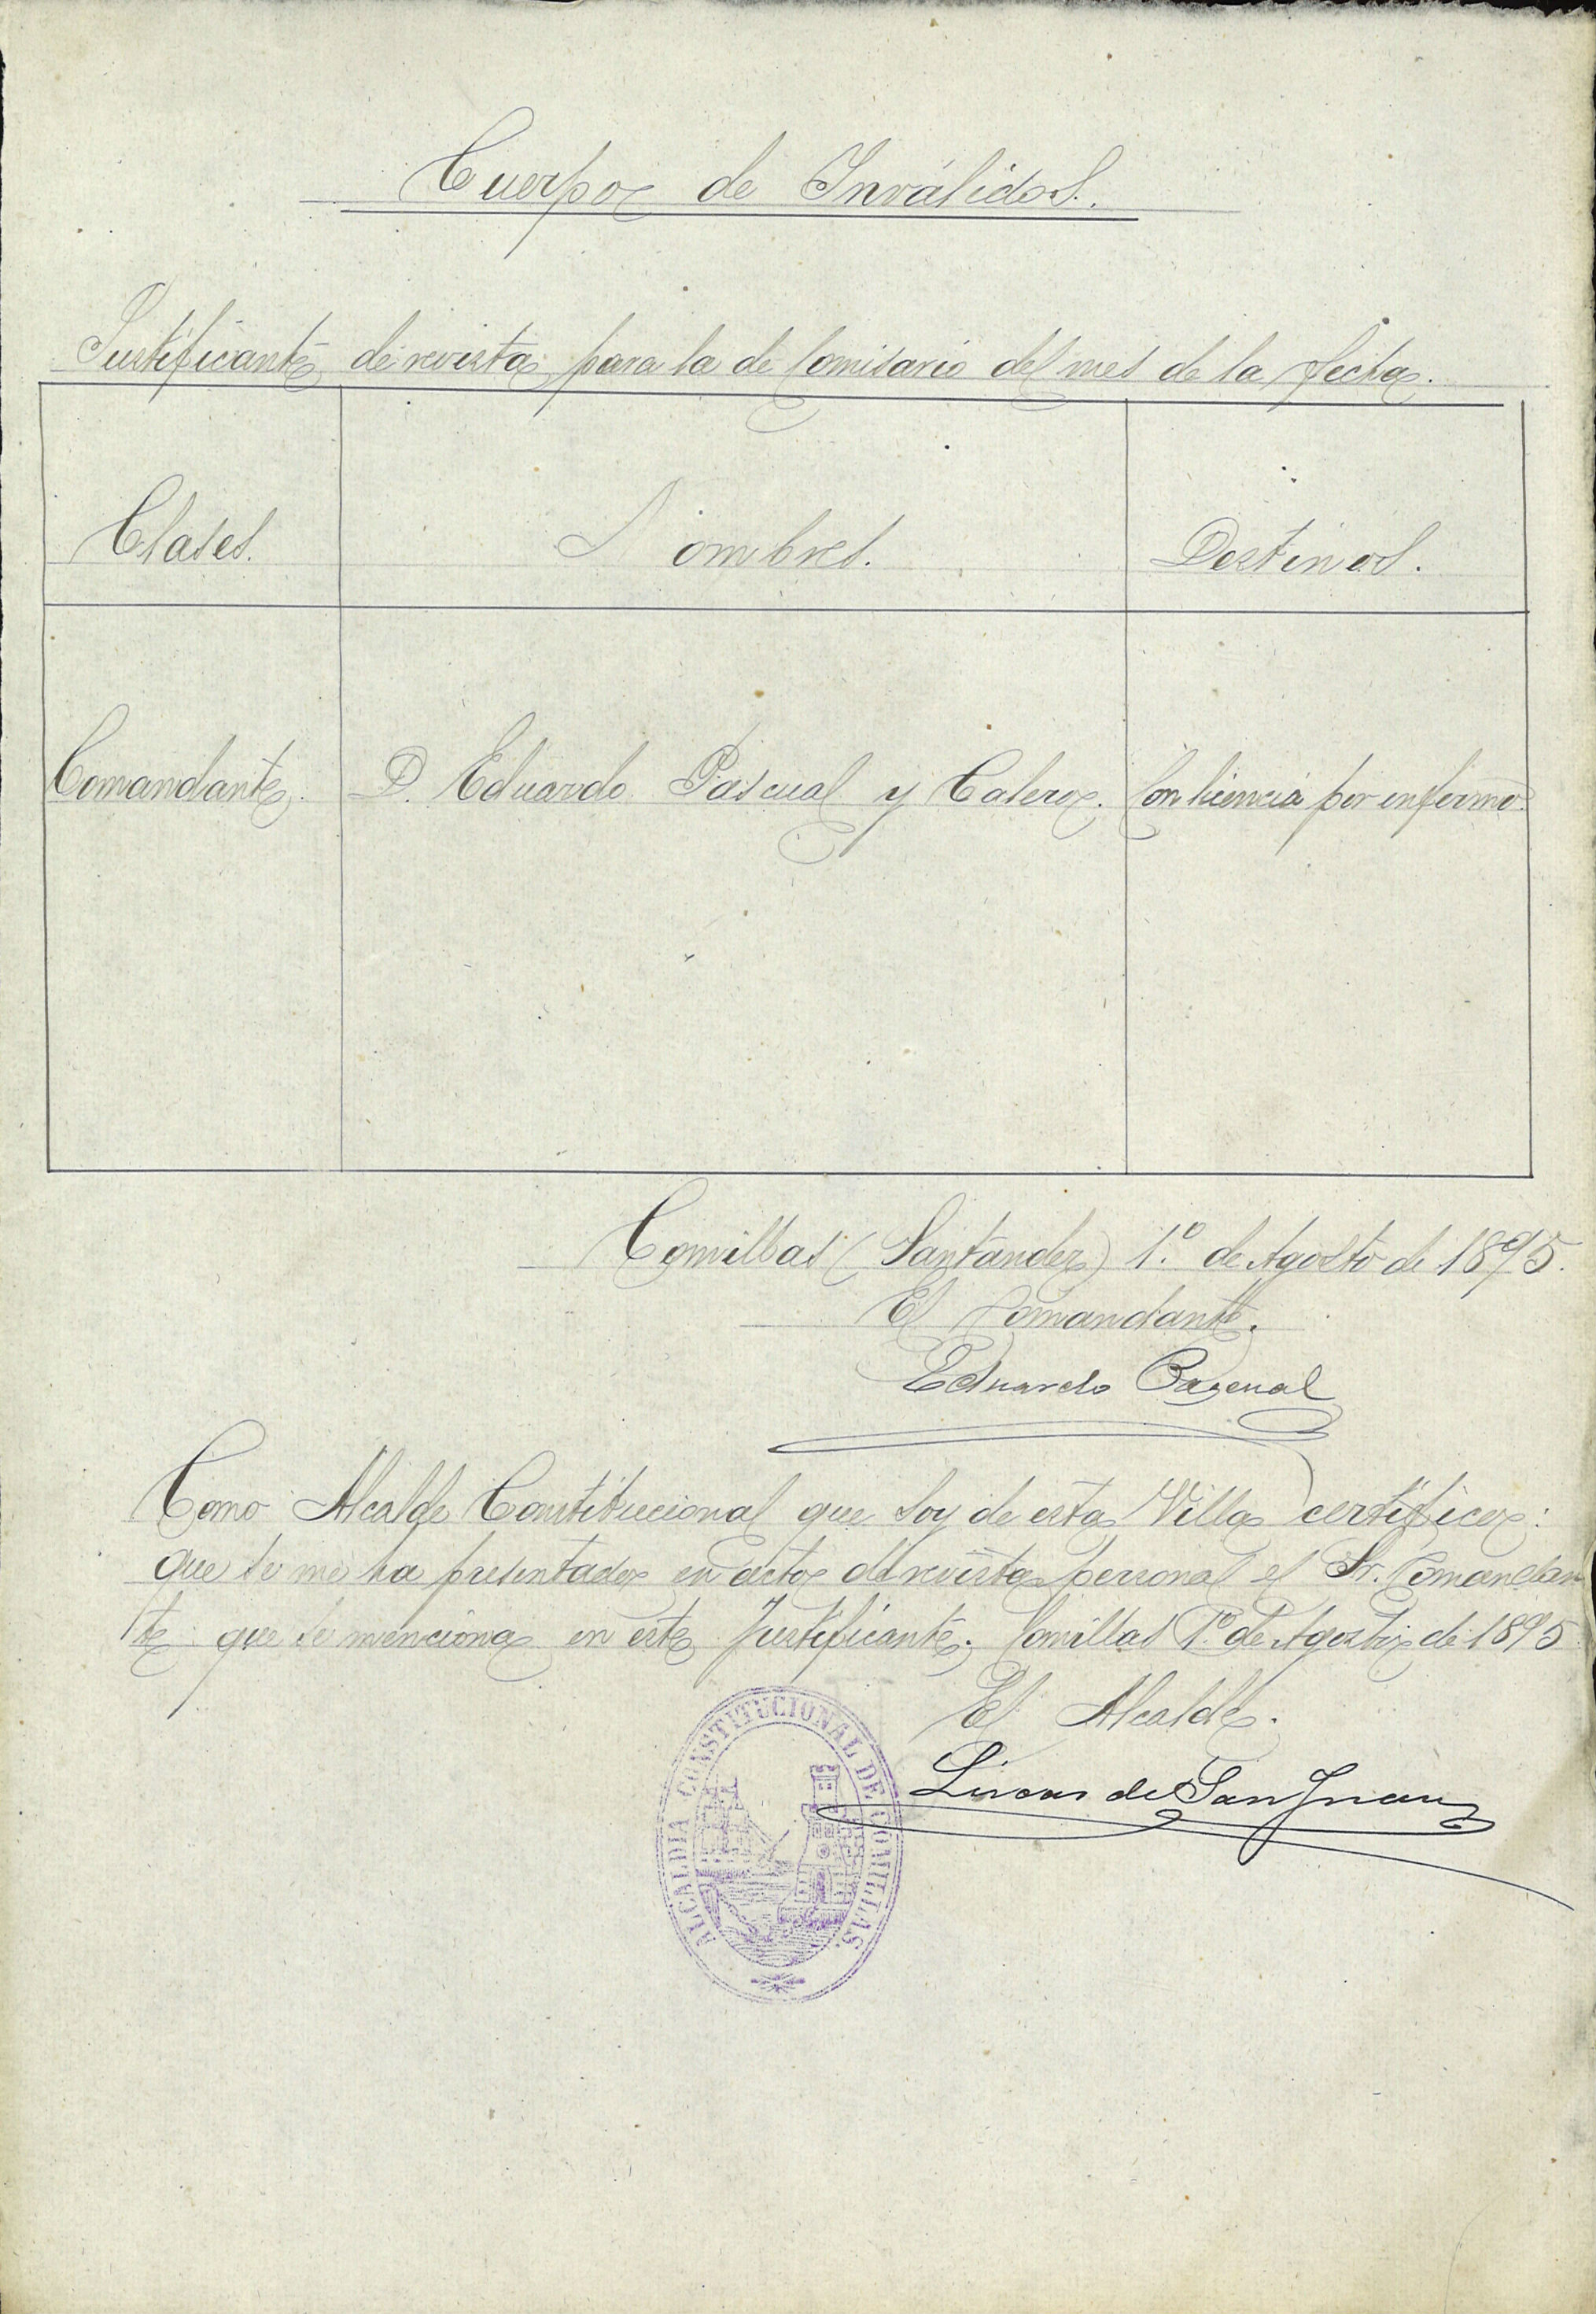 Cuerpo de Inválidos.
Justificante de revista para la de Comisario del mes de la fecha.
Clases. Nombres. Destinos.
Comandante. D. Eduardo Pascual y Calero. Con licencia por enfermo.
Comillas (Santander) 1.º de Agosto de 1895.
El Comandante.
Eduardo Pascual
Como Alcalde Constitucional que soy de esta Villa certifico:
que se me ha presentado en acto de revista personal el Sr. Comandan
te que se menciona en este Justificante. Comillas 1.º de Agosto de 1895
El Alcalde.
de San Juan
ALCALDIA CONSTITUCIONAL DE COMILLAS.